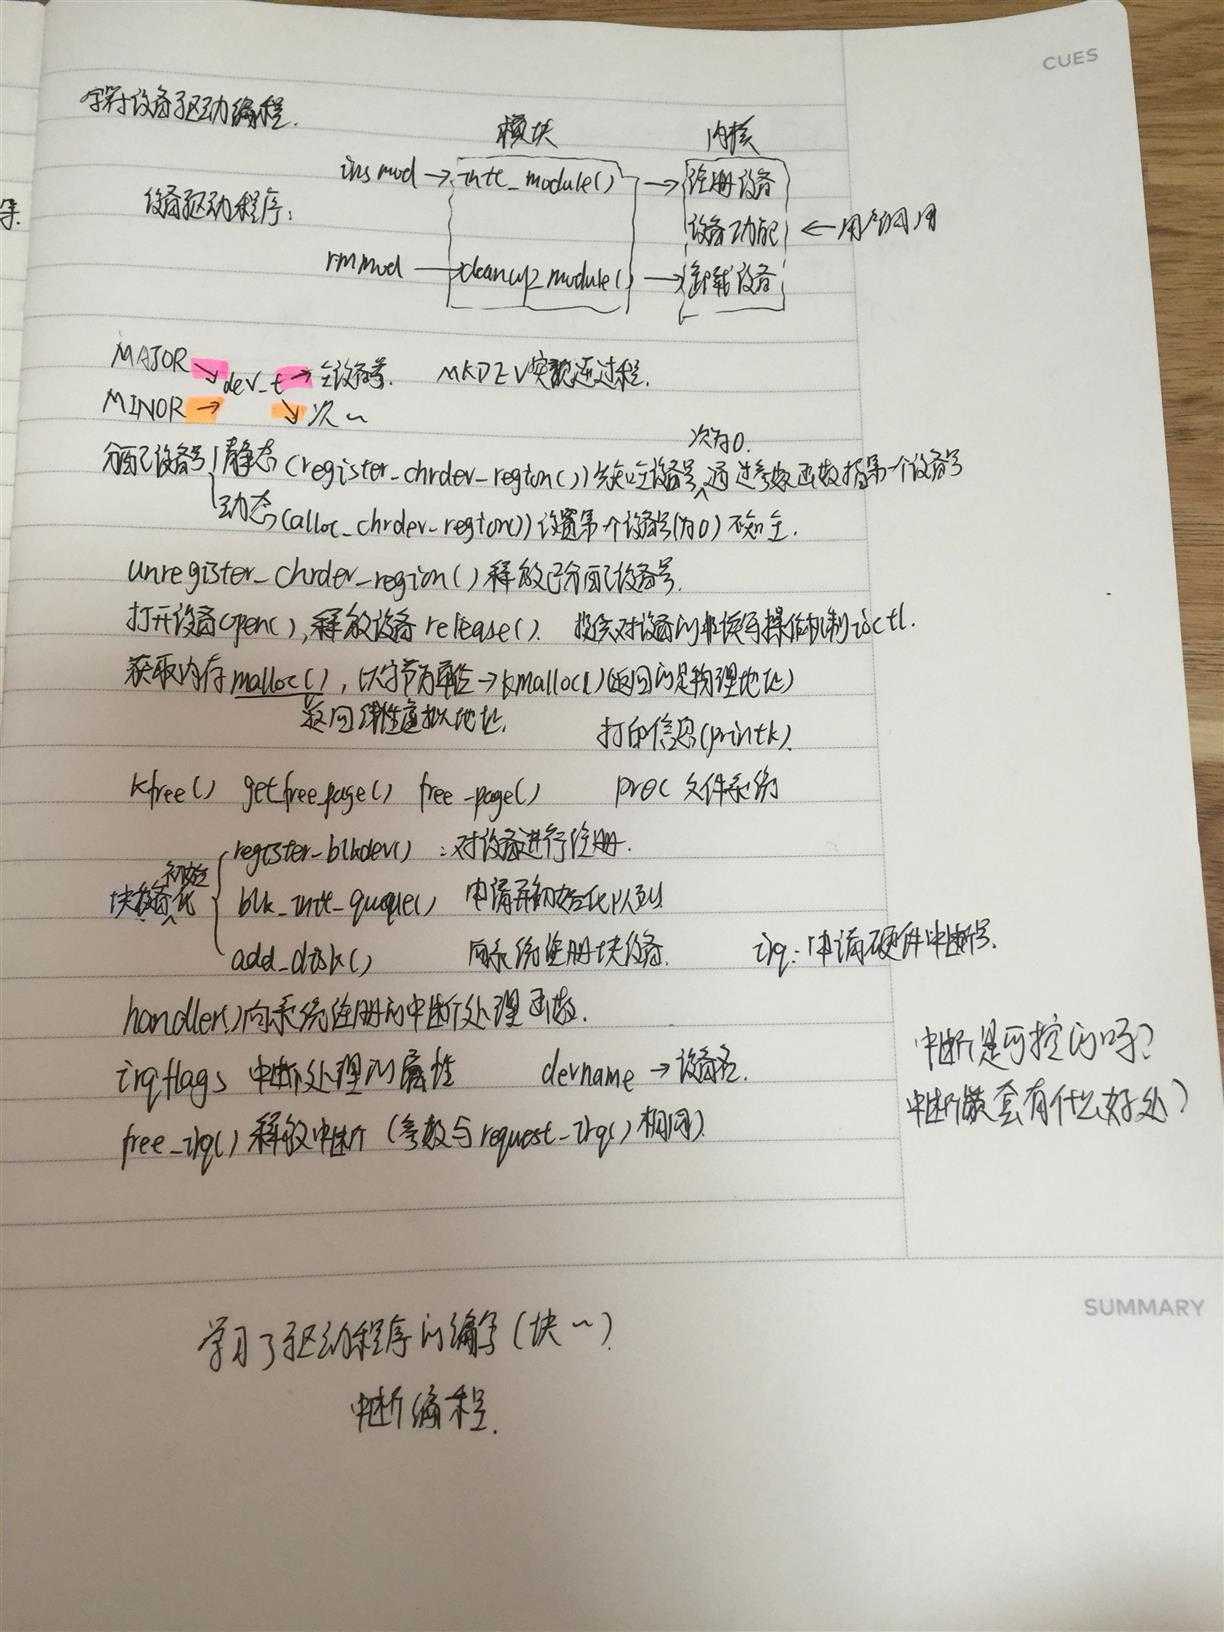 CUES
字符设备驱动编程.
模块 内核
insmod → init_module() → 注册设备
设备驱动程序:
设备功能 ← 用户调用
rmmod → cleanup_module() → 卸载设备
MAJOR
dev_t → 主设备号. MKDEV实现逆过程.
MINOR → 次~
次为0.
分配设备号 静态(register_chrdev_region()) 主设备号 通过参数 函数指第一个设备号
动态(alloc_chrdev_region()) 设置第一个设备号(为0) 不知主.
unregister_chrdev_region() 释放已分配设备号.
打开设备open(), 释放设备 release(). 提供对设备的非读写操作机制ioctl.
获取内存malloc(), 以字节为单位→kmalloc()(返回的是物理地址)
返回线性虚拟地址. 打印信息(printk).
kfree() get_free_page() free_page() proc 文件系统
register_blkdev() :对设备进行注册.
初始
块设备化 blk_init_queque() 申请并初始化队列
add_disk() 向系统注册块设备. irq:申请硬件中断号.
handler()向系统注册的中断处理函数.
中断是可控的吗?
irqflags 中断处理的属性 devname → 设备名.
中断嵌套有什么好处?
free_irq() 释放中断 (参数与request_irq()相同).
SUMMARY
学习了驱动程序的编写(块~).
中断编程.